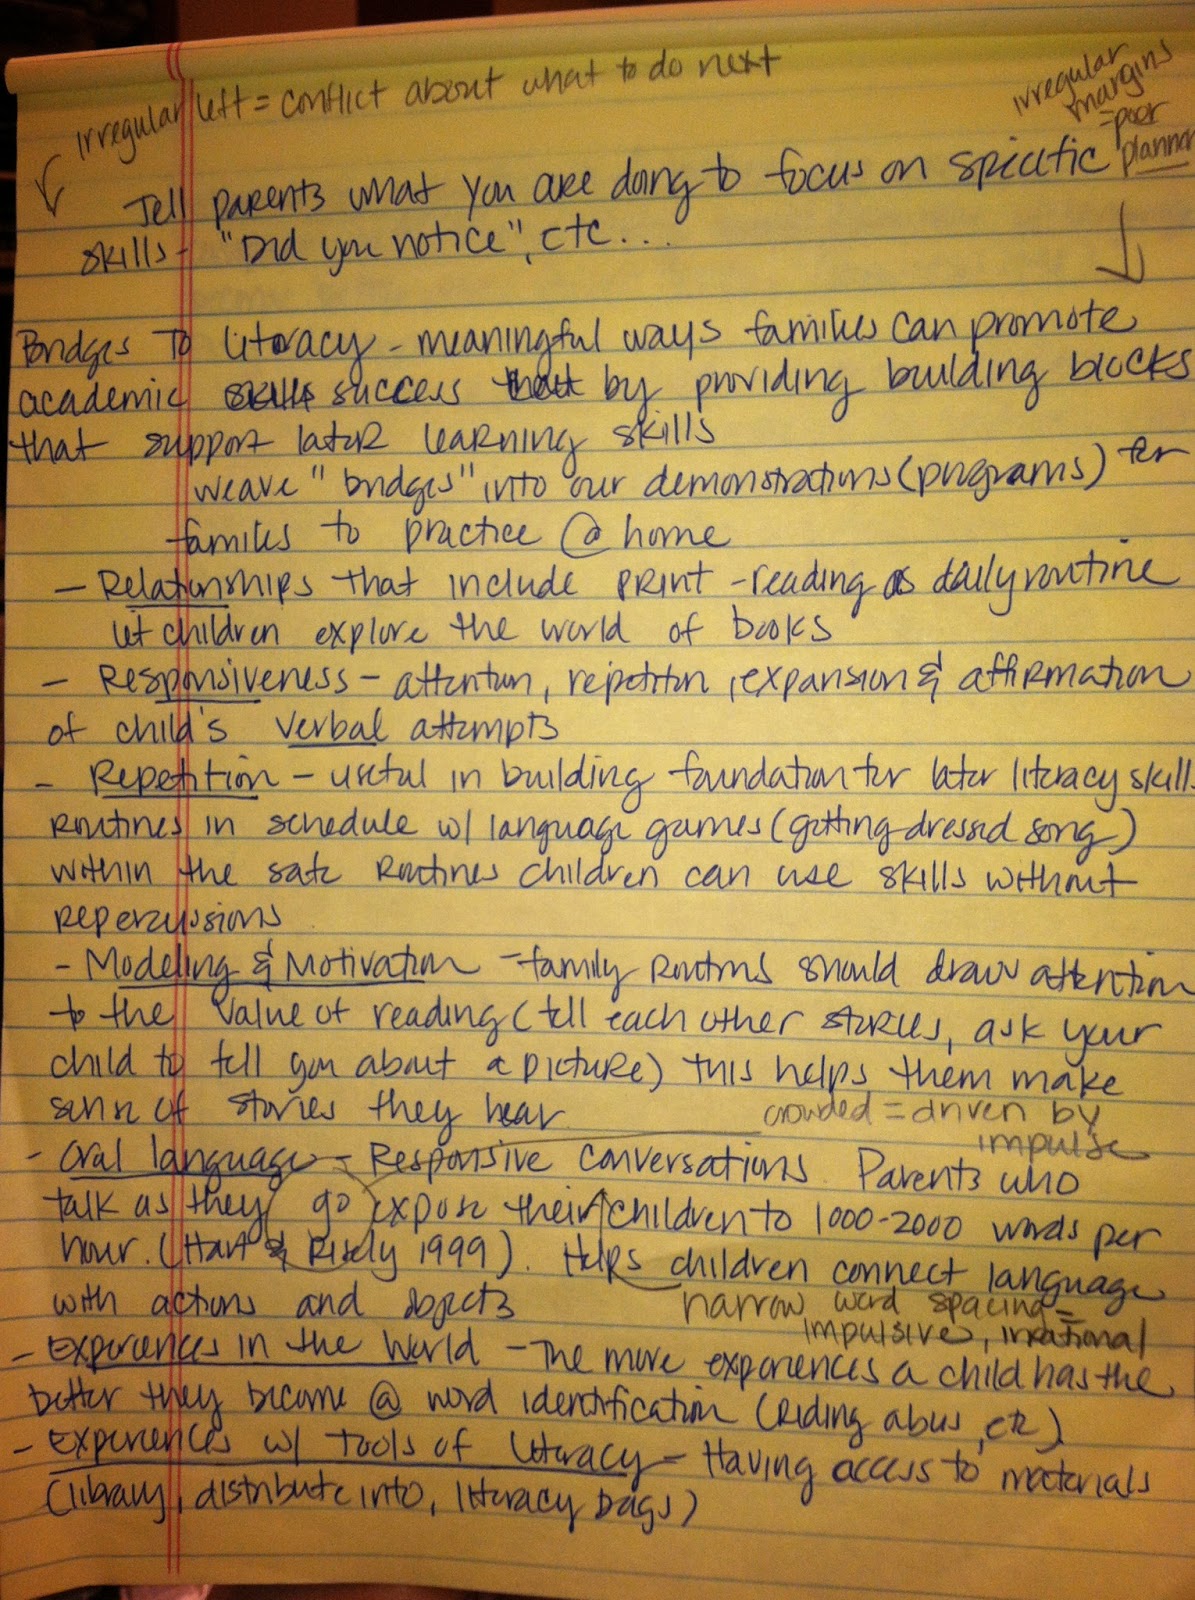 irregular left = conflict about what to do next
irregular
margins
= poor
planner
Tell parents what you are doing to focus on specific
skills - "Did you notice", etc...
Bridges To literacy - meaningful ways families can promote
academic skills success that by providing building blocks
that support later learning skills
weave "bridges" into our demonstrations (programs) for
families to practice @ home
- Relationships that include print - reading as daily routine
let children explore the world of books
- Responsiveness - attention, repetition, expansion & affirmation
of child's verbal attempts
- Repetition - useful in building foundation for later literacy skills
Routines in schedule w/ language games (getting dressed song)
within the safe routines children can use skills without
repercussions
- Modeling & Motivation - family routines should draw attention
to the value of reading (tell each other stories, ask your
child to tell you about a picture) this helps them make
sense of stories they hear
crowded = driven by
impulse
- Oral language - Responsive conversations. Parents who
talk as they go expose their children to 1000-2000 words per
hour. (Hart & Risely 1999). Helps children connect language
with actions and objects
narrow word spacing =
impulsive, irrational
- Experiences in the World - The more experiences a child has the
better they become @ word identification (riding a bus, etc)
- Experiences w/ Tools of Literacy - Having access to materials
(library, distribute info, literacy bags)